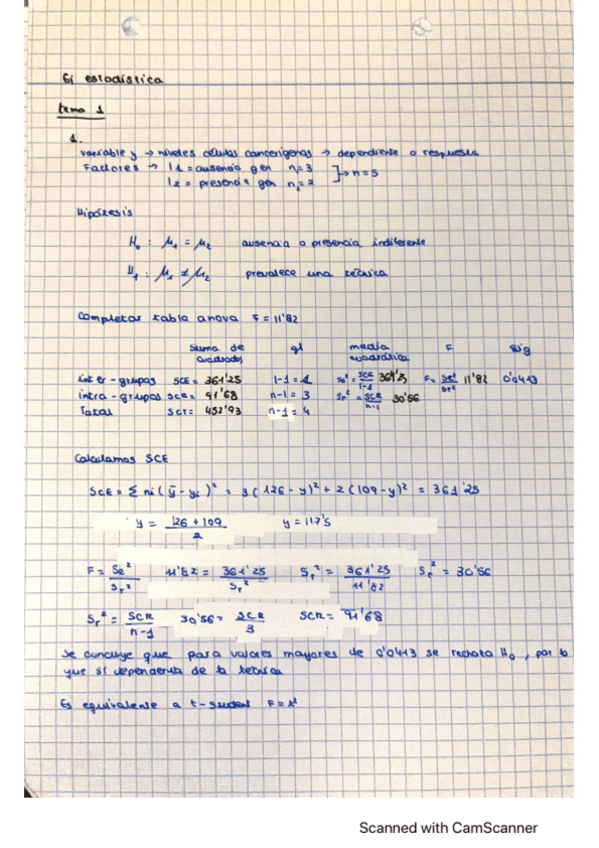 Ej estadística
tema 1
1.
variable y → niveles células cancerígenas → dependiente o respuesta
Factores → I1 = ausencia gen n1=3
I2 = presencia gen n2=2 ]→ n=5
Hipótesis
H0 : μ1 = μ2 ausencia o presencia indiferente
H1 : μ1 ≠ μ2 prevalece una técnica
Completar tabla anova F = 11'82
Suma de cuadrados gl media cuadrática F Sig
inter-grupos SCE = 361'25 I-1 = 1 Se² = SCE/I-1 361'25 F = Se²/Sr² 11'82 0'0413
intra-grupos SCR = 91'68 n-I = 3 Sr² = SCR/n-I 30'56
Total SCT = 452'93 n-1 = 4
Calculamos SCE
SCE = Σ ni (ȳ - yi)² = 3(126 - y)² + 2(109-y)² = 361'25
y = 126 + 109 / 2 y = 117'5
F = Se²/Sr² 11'82 = 361'25/Sr² Sr² = 361'25/11'82 Sr² = 30'56
Sr² = SCR/n-I 30'56 = SCR/3 SCR = 91'68
Se concluye que para valores mayores de 0'0413 se rechaza H0, por lo
que sí dependería de la técnica
Es equivalente a t-student F = t²
Scanned with CamScanner